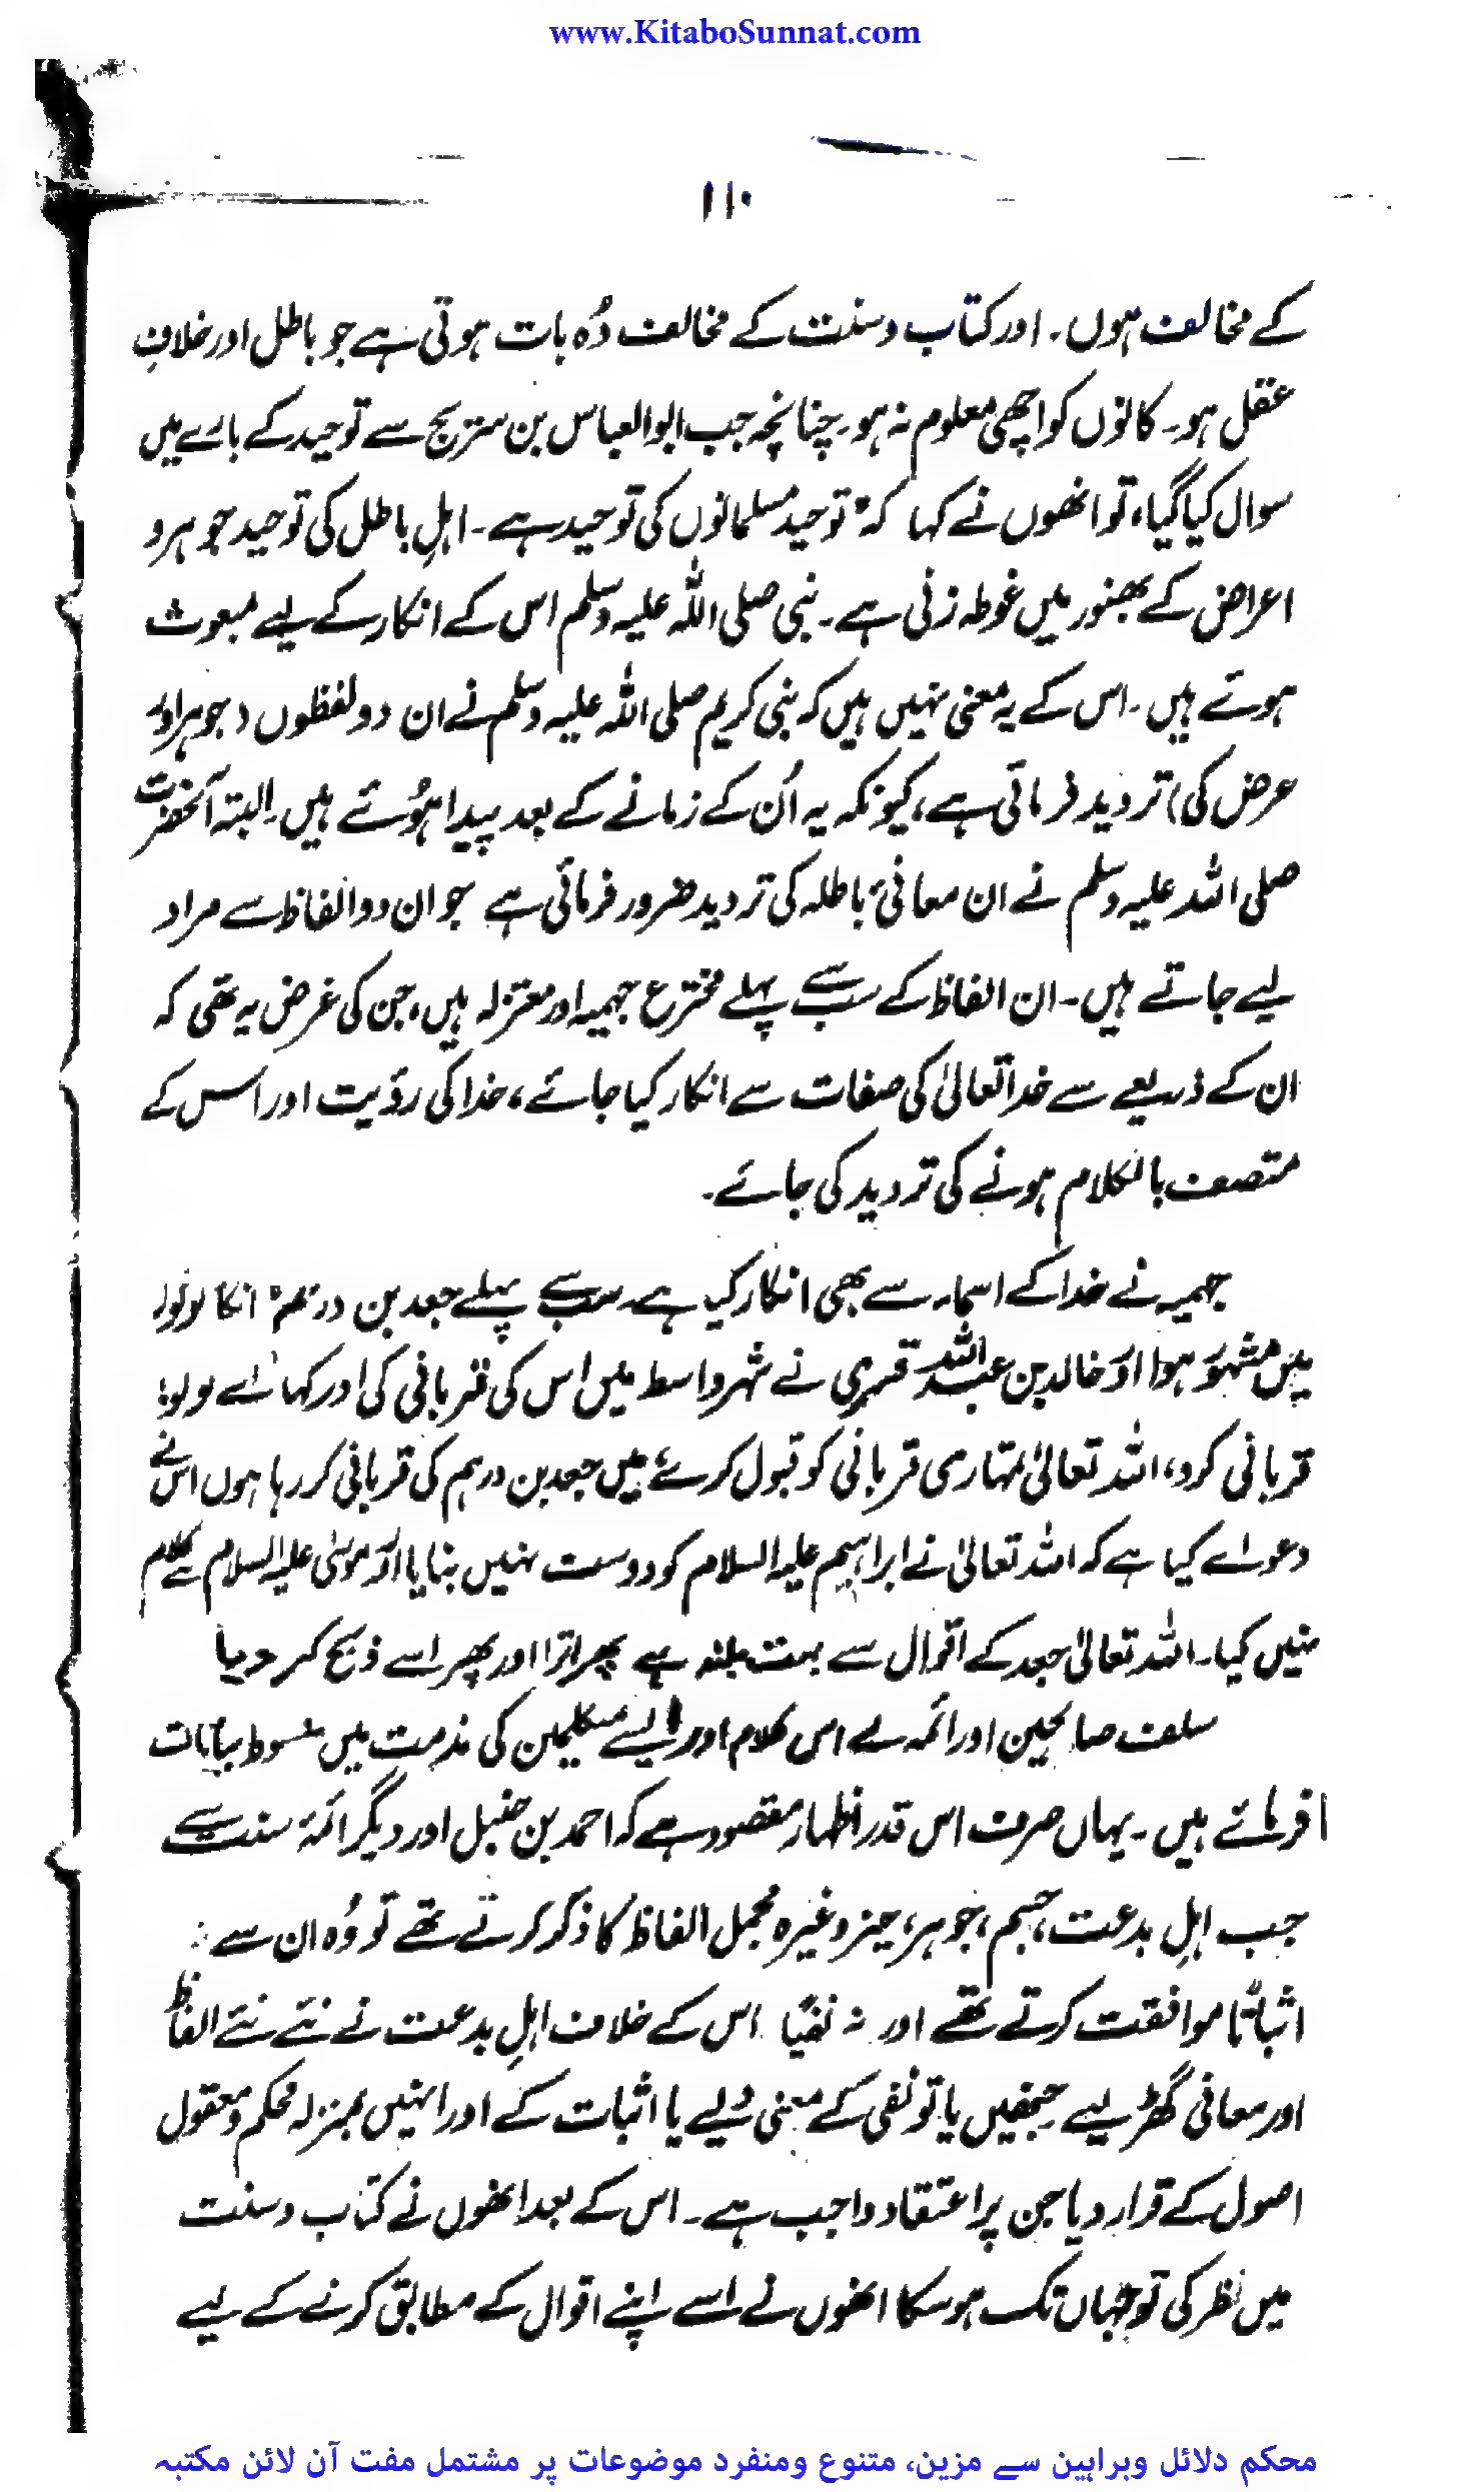 www.KitaboSunnat.com
۱۱۰
کے مخالف ہوں۔ اور کتاب و سنت کے مخالف وُہ بات ہوتی ہے جو باطل اور خلافِ
عقل ہو۔ کانوں کو اچھی معلوم نہ ہو۔ چنانچہ جب ابوالعباس بن سریج سے توحید کے بارے میں
سوال کیا گیا، تو انھوں نے کہا کہ "توحید مسلمانوں کی توحید ہے۔ اہلِ باطل کی توحید جوہر و
اعراض کے بھنور میں غوطہ زنی ہے۔ نبی صلی اللہ علیہ وسلم اس کے انکار کے لیے مبعوث
ہوئے ہیں۔ اس کے یہ معنی نہیں ہیں کہ نبی کریم صلی اللہ علیہ وسلم نے ان دو لفظوں (جوہر اور
عرض کی) تردید فرمائی ہے، کیونکہ یہ اُن کے زمانے کے بعد پیدا ہُوئے ہیں۔ البتہ آنحضرت
صلی اللہ علیہ وسلم نے ان معانیٔ باطلہ کی تردید ضرور فرمائی ہے جو ان دو الفاظ سے مراد
لیے جاتے ہیں۔ ان الفاظ کے سب سے پہلے مخترع جہمیہ اور معتزلہ ہیں، جن کی غرض یہ تھی کہ
ان کے ذریعے سے خدا تعالیٰ کی صفات سے انکار کیا جائے، خدا کی رؤیت اور اس کے
متصف بالکلام ہونے کی تردید کی جائے۔
جہمیہ نے خدا کے اسماء سے بھی انکار کیا ہے۔ سب سے پہلے جعد بن درہم
میں مشہور ہوا اور خالد بن عبداللہ قسری نے شہر واسط میں اس کی قربانی کی اور کہا اے لوگو!
قربانی کرو، اللہ تعالیٰ تمہاری قربانی کو قبول کرے، میں جعد بن درہم کی قربانی کر رہا ہوں اس نے
دعوٰے کیا ہے کہ اللہ تعالیٰ نے ابراہیم علیہ السلام کو دوست نہیں بنایا اور موسیٰ علیہ السلام سے کلام
نہیں کیا۔ اللہ تعالیٰ جعد کے اقوال سے بہت بلند ہے پھر اترا اور پھر اسے ذبح کر دیا
سلف صالحین اور ائمہ نے اس کلام اور ایسے متکلمین کی مذمت میں مبسوط بیانات
فرمائے ہیں۔ یہاں صرف اس قدر اظہار مقصود ہے کہ احمد بن حنبل اور دیگر ائمۂ سنت سے
جب اہلِ بدعت، جسم، جوہر، حیز وغیرہ مجمل الفاظ کا ذکر کرتے تھے تو وُہ ان سے نہ
اثباتًا موافقت کرتے تھے اور نہ نفیًا اس کے خلاف اہلِ بدعت نے نئے نئے الفاظ
اور معانی گھڑ لیے جنھیں یا تو نفی کے معنی دیے یا اثبات کے اور انہیں بمنزلہ محکم و معقول
اصول کے قرار دیا جن پر اعتقاد واجب ہے۔ اس کے بعد انھوں نے کتاب و سنت
میں نظر کی تو جہاں تک ہو سکا انھوں نے اسے اپنے اقوال کے مطابق کرنے کے لیے
محکم دلائل وبراہین سے مزین، متنوع ومنفرد موضوعات پر مشتمل مفت آن لائن مکتبہ